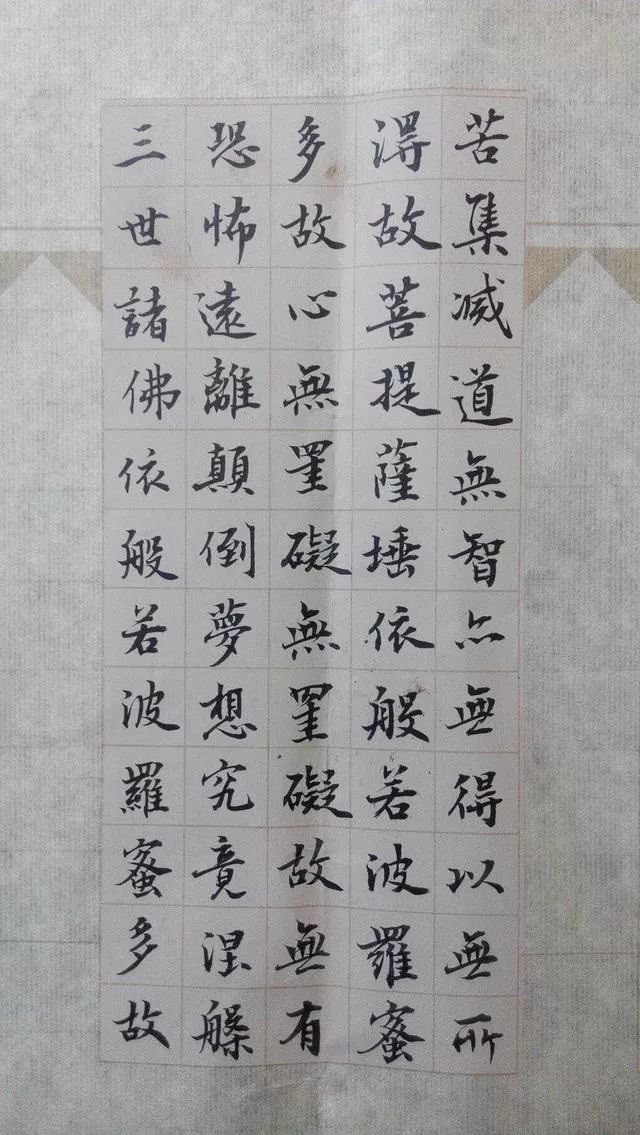 苦集滅道無智亦無得以無所
得故菩提薩埵依般若波羅蜜
多故心無罣礙無罣礙故無有
恐怖遠離顛倒夢想究竟涅槃
三世諸佛依般若波羅蜜多故